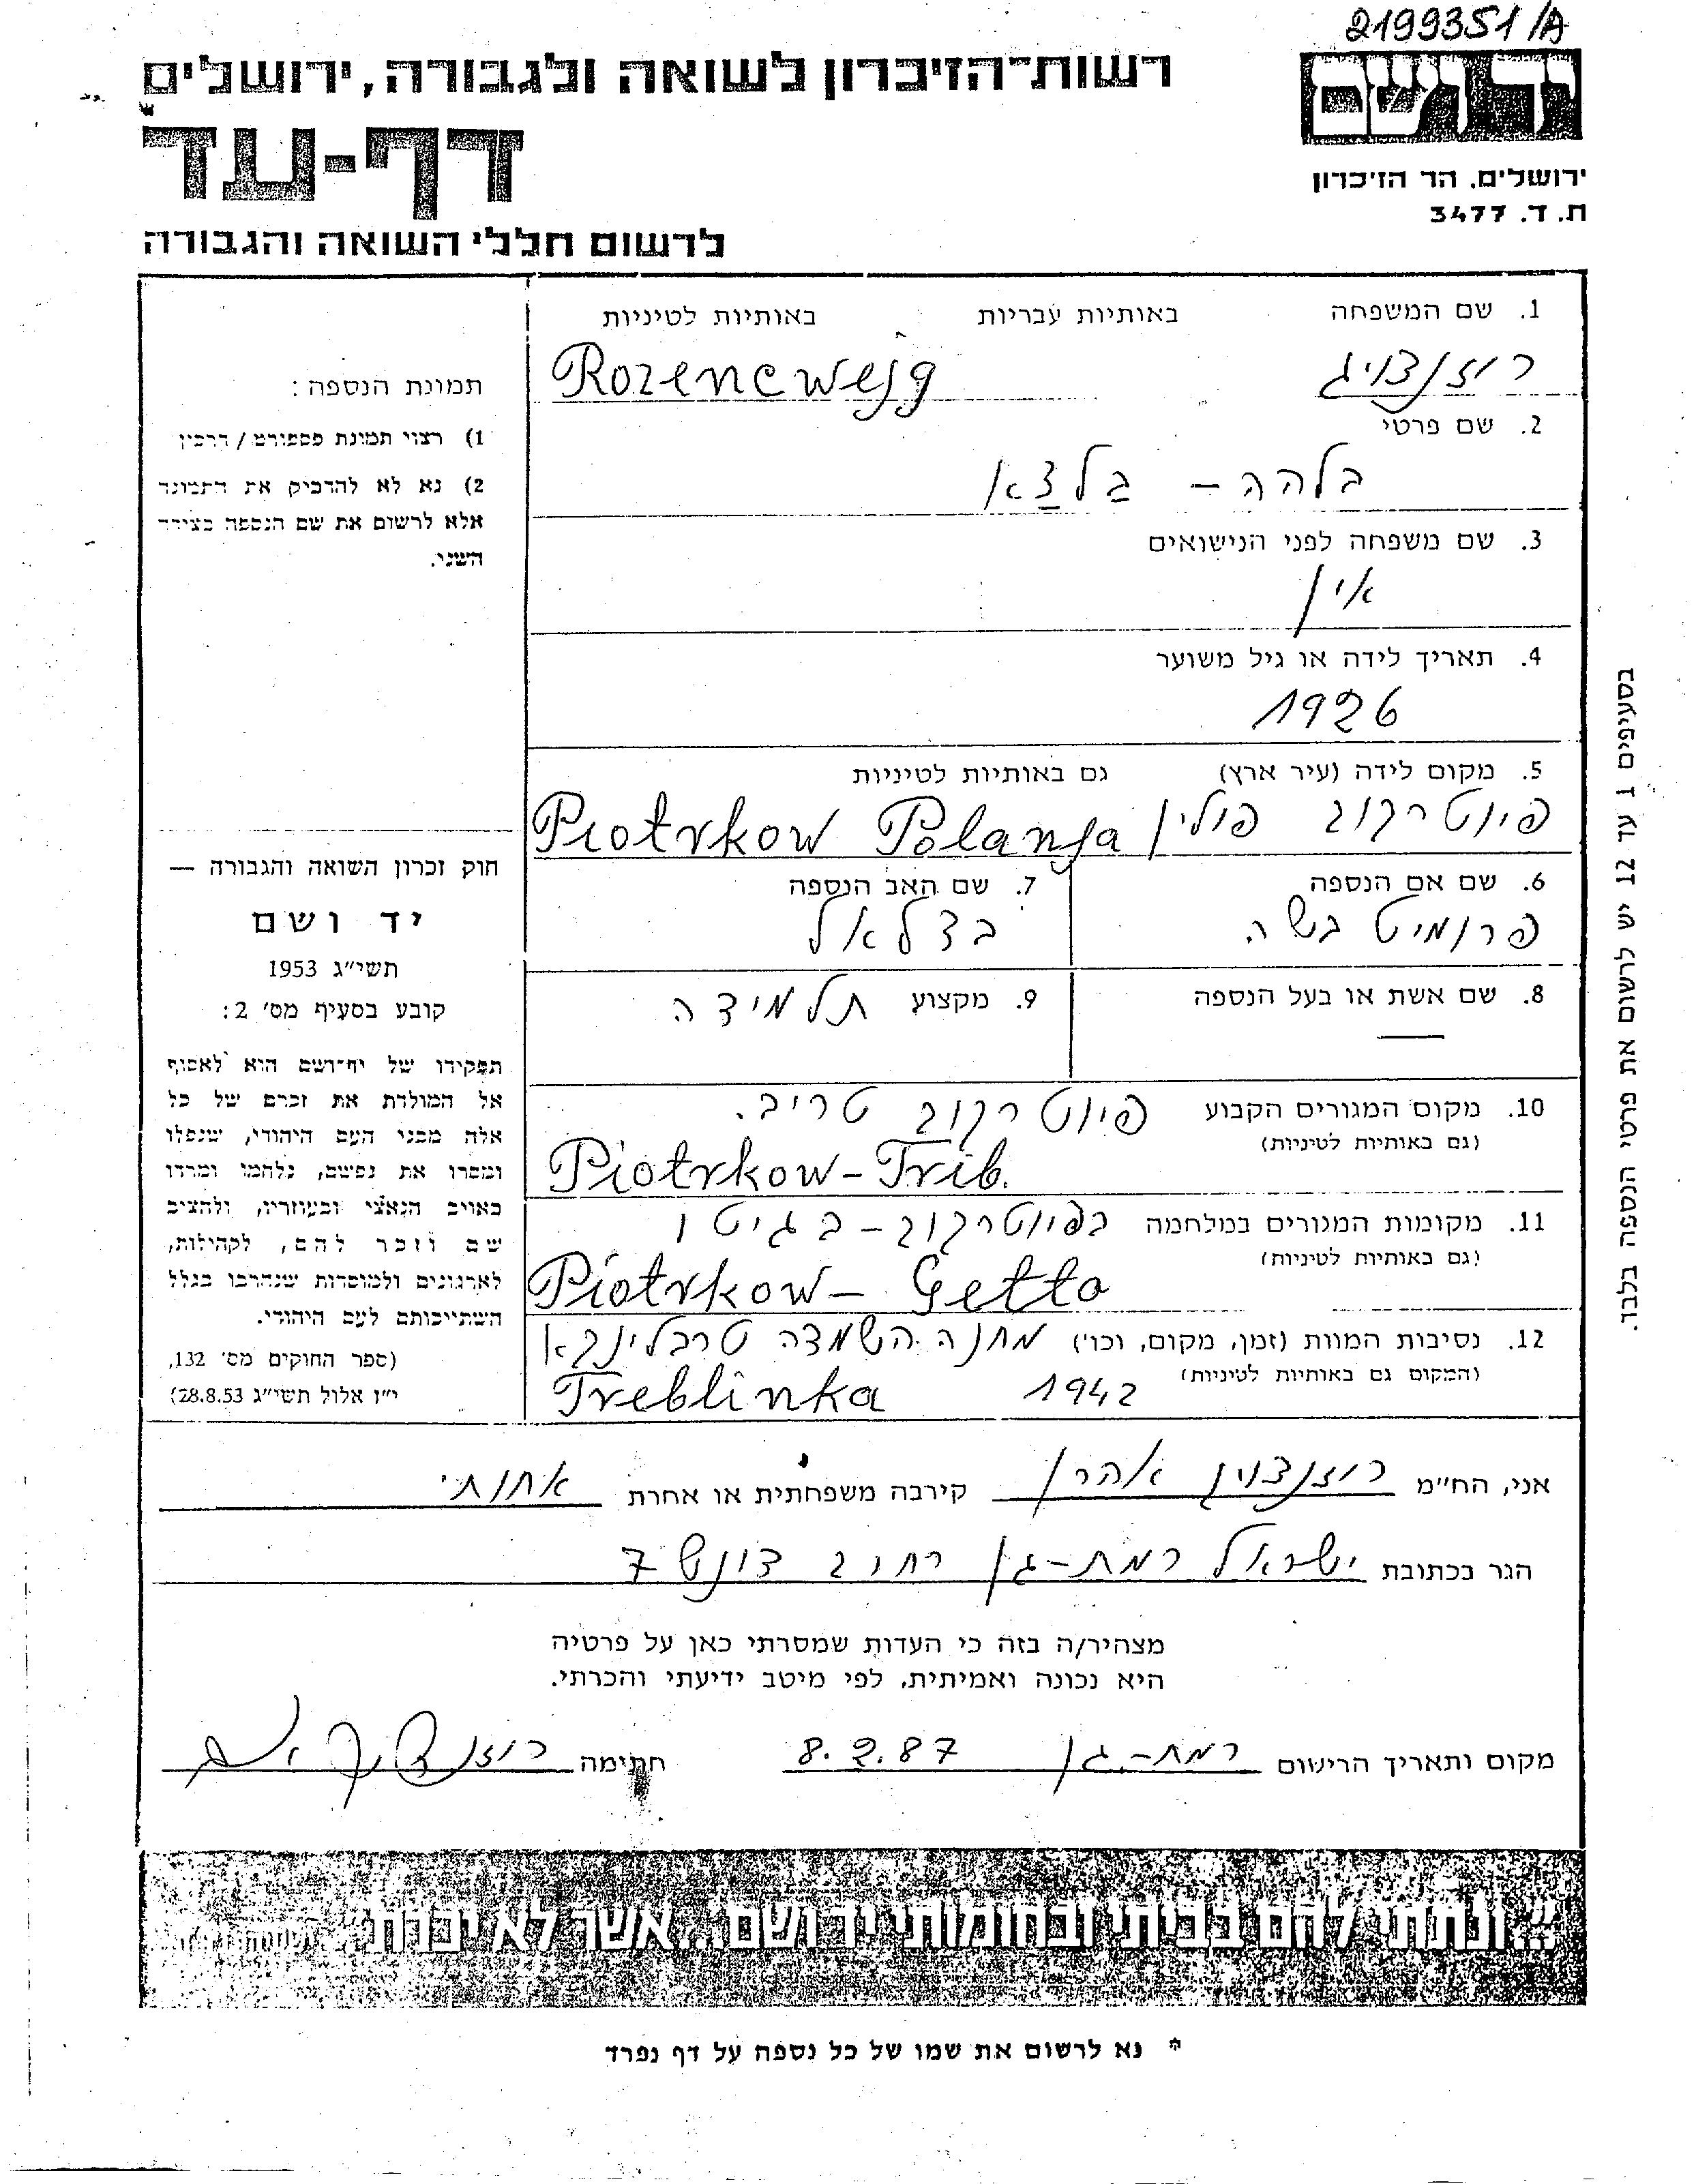 2199351/A
רשות־הזיכרון לשואה ולגבורה, ירושלים
יד ושם
דף-עד
ירושלים. הר הזיכרון
ת. ד. 3477
לרשום חללי השואה והגבורה
1. שם המשפחה באותיות עבריות באותיות לטיניות
רוזנצויג Rozencwejg
2. שם פרטי
בלהה - גלצאן
3. שם משפחה לפני הנישואים
אין
4. תאריך לידה או גיל משוער
1926
5. מקום לידה (עיר ארץ) גם באותיות לטיניות
פיוטרקוב פולין Piotrkow Polanja
6. שם אם הנספה
פרומיט בשה
7. שם האב הנספה
בצלאל
8. שם אשת או בעל הנספה
—
9. מקצוע תלמידה
10. מקום המגורים הקבוע פיוטרקוב טריב.
(גם באותיות לטיניות)
Piotrkow-Trib.
11. מקומות המגורים במלחמה בפיוטרקוב-בגיטו
(גם באותיות לטיניות)
Piotrkow- Getto
12. נסיבות המוות (זמן, מקום, וכו') מחנה השמדה טרבלינקא
(המקום גם באותיות לטיניות) 1942
Treblinka
תמונת הנספה:
1) רצוי תמונת פספורט/דרכון
2) נא לא להדביק את התמונה
אלא לרשום את שם הנספה בצידה
השני.
חוק זכרון השואה והגבורה —
יד ושם
תשי״ג 1953
קובע בסעיף מס' 2:
תפקידו של יד־ושם הוא לאסוף
אל המולדת את זכרם של כל
אלה מבני העם היהודי, שנפלו
ומסרו את נפשם, נלחמו ומרדו
באויב הנאצי ובעוזריו, ולהציב
שם וזכר להם, לקהילות,
לארגונים ולמוסדות שנחרבו בגלל
השתייכותם לעם היהודי.
(ספר החוקים מס' 132,
י״ז אלול תשי״ג 28.8.53)
בסעיפים 1 עד 12 יש לרשום את פרטי הנספה בלבד.
אני, הח״מ רוזנצויג אהרן קירבה משפחתית או אחרת אחותי
הגר בכתובת ישראל רמת-גן רחוב דונש 7
מצהיר/ה בזה כי העדות שמסרתי כאן על פרטיה
היא נכונה ואמיתית, לפי מיטב ידיעתי והכרתי.
מקום ותאריך הרישום רמת-גן 8.2.87 חתימה
"...ונתתי להם בביתי ובחומותי יד ושם... אשר לא יכרת"
* נא לרשום את שמו של כל נספה על דף נפרד